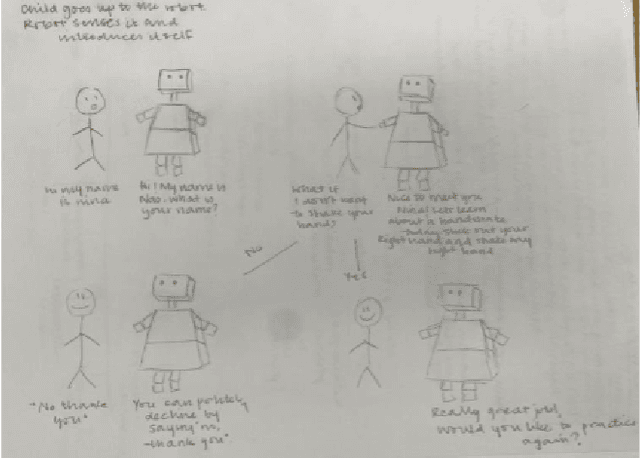 Child goes up to the robot
Robot senses it and
introduces itself
Hi my name
is nina
Hi! My name is
what is
your name?
What if
I don't want
to shake your
hand?
Nice to meet you
Nina! Let's learn
about a handshake
today. Stick out your
Right hand and shake my
right hand
No
Yes
"No thank
you"
You can politely
decline by
saying "no,
thank you"
Really great job,
would you like to practice
again?